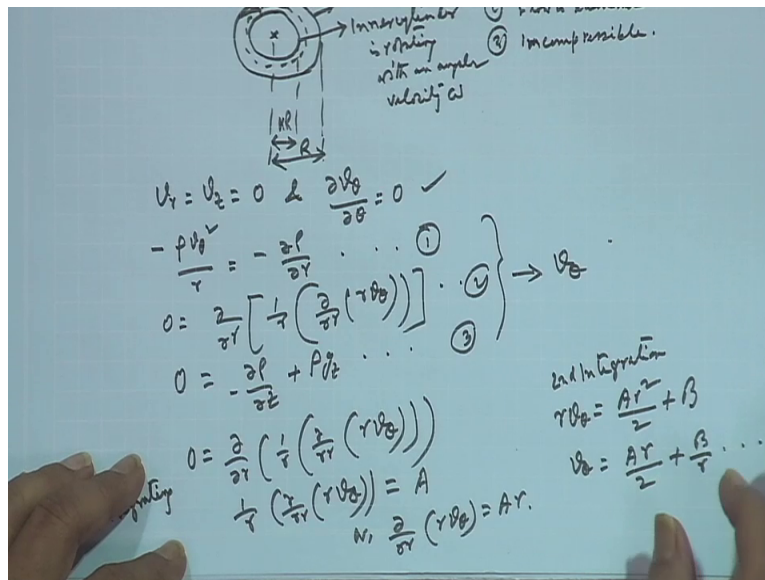 Inner cylinder
is rotating
with an angular
velocity ω
② Incompressible.
KR
R
v_r = v_z = 0 & ∂v_θ/∂θ = 0 ✓
- ρv_θ²/r = - ∂P/∂r ... ①
0 = ∂/∂r [1/r (∂/∂r (r v_θ))] .. ②
→ v_θ
0 = - ∂P/∂z + ρg_z ... ③
0 = ∂/∂r (1/r (∂/∂r (r v_θ)))
1/r (∂/∂r (r v_θ)) = A
∂/∂r (r v_θ) = Ar.
2nd Integration
r v_θ = Ar²/2 + B
v_θ = Ar/2 + B/r ...